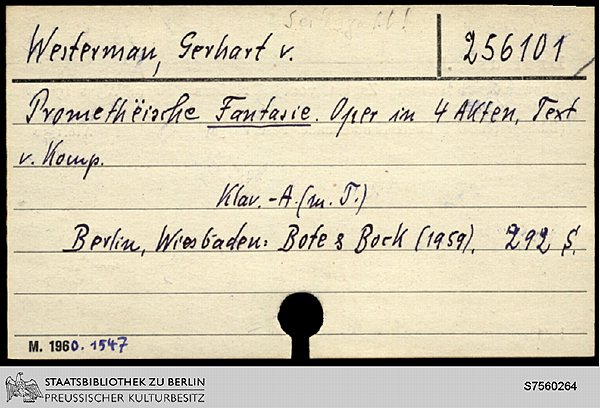 Westerman, Gerhart v.
256101
Promethëische Fantasie. Oper in 4 Akten, Text
v. Komp.
Klav.-A. (m. T.)
Berlin, Wiesbaden: Bote & Bock (1959). 292 S.
M. 1960. 1547
STAATSBIBLIOTHEK ZU BERLIN
PREUSSISCHER KULTURBESITZ
S7560264